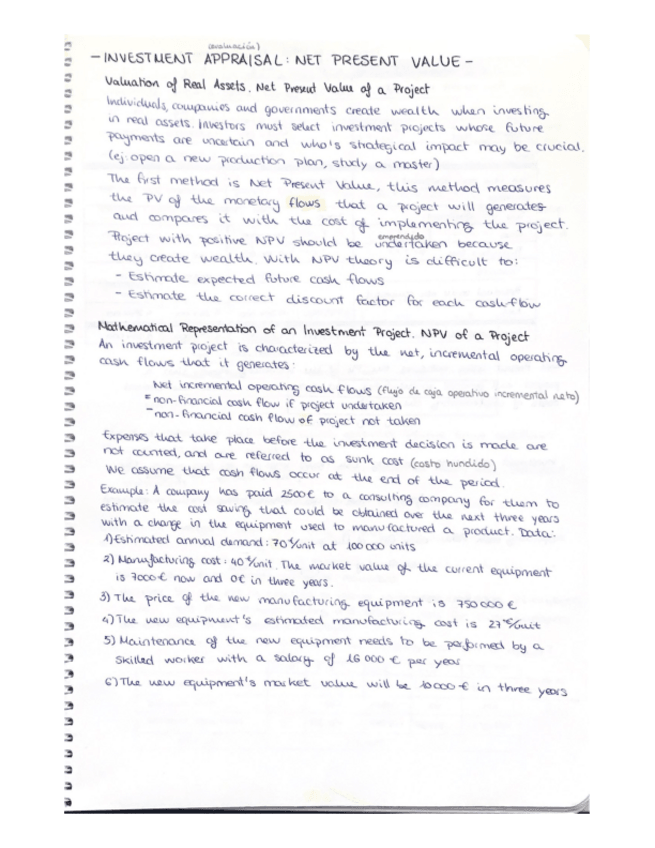 (evaluación)
- INVESTMENT APPRAISAL: NET PRESENT VALUE -
Valuation of Real Assets. Net Present Value of a Project
Individuals, companies and governments create wealth when investing
in real assets. Investors must select investment projects whose future
payments are uncertain and who's strategical impact may be crucial.
(ej: open a new production plan, study a master)
The first method is Net Present Value, this method measures
the PV of the monetary flows that a project will generates
and compares it with the cost of implementing the project.
emprendido
Project with positive NPV should be undertaken because
they create wealth. With NPV theory is difficult to:
- Estimate expected future cash flows
- Estimate the correct discount factor for each cashflow
Mathematical Representation of an Investment Project. NPV of a Project
An investment project is characterized by the net, incremental operating
cash flows that it generates:
Net incremental operating cash flows (flujo de caja operativo incremental neto)
= non-financial cash flow if project undertaken
- non-financial cash flow of project not taken
Expenses that take place before the investment decision is made are
not counted, and are referred to as sunk cost (costo hundido)
We assume that cash flows occur at the end of the period.
Example: A company has paid 2500€ to a consulting company for them to
estimate the cost saving that could be obtained over the next three years
with a change in the equipment used to manufactured a product. Data:
1) Estimated annual demand: 70€/unit at 100000 units
2) Manufacturing cost: 40€/unit. The market value of the current equipment
is 7000€ now and 0€ in three years.
3) The price of the new manufacturing equipment is 750000 €
4) The new equipment's estimated manufacturing cost is 27€/unit
5) Maintenance of the new equipment needs to be performed by a
skilled worker with a salary of 16 000 € per year
6) The new equipment's market value will be 10000€ in three years